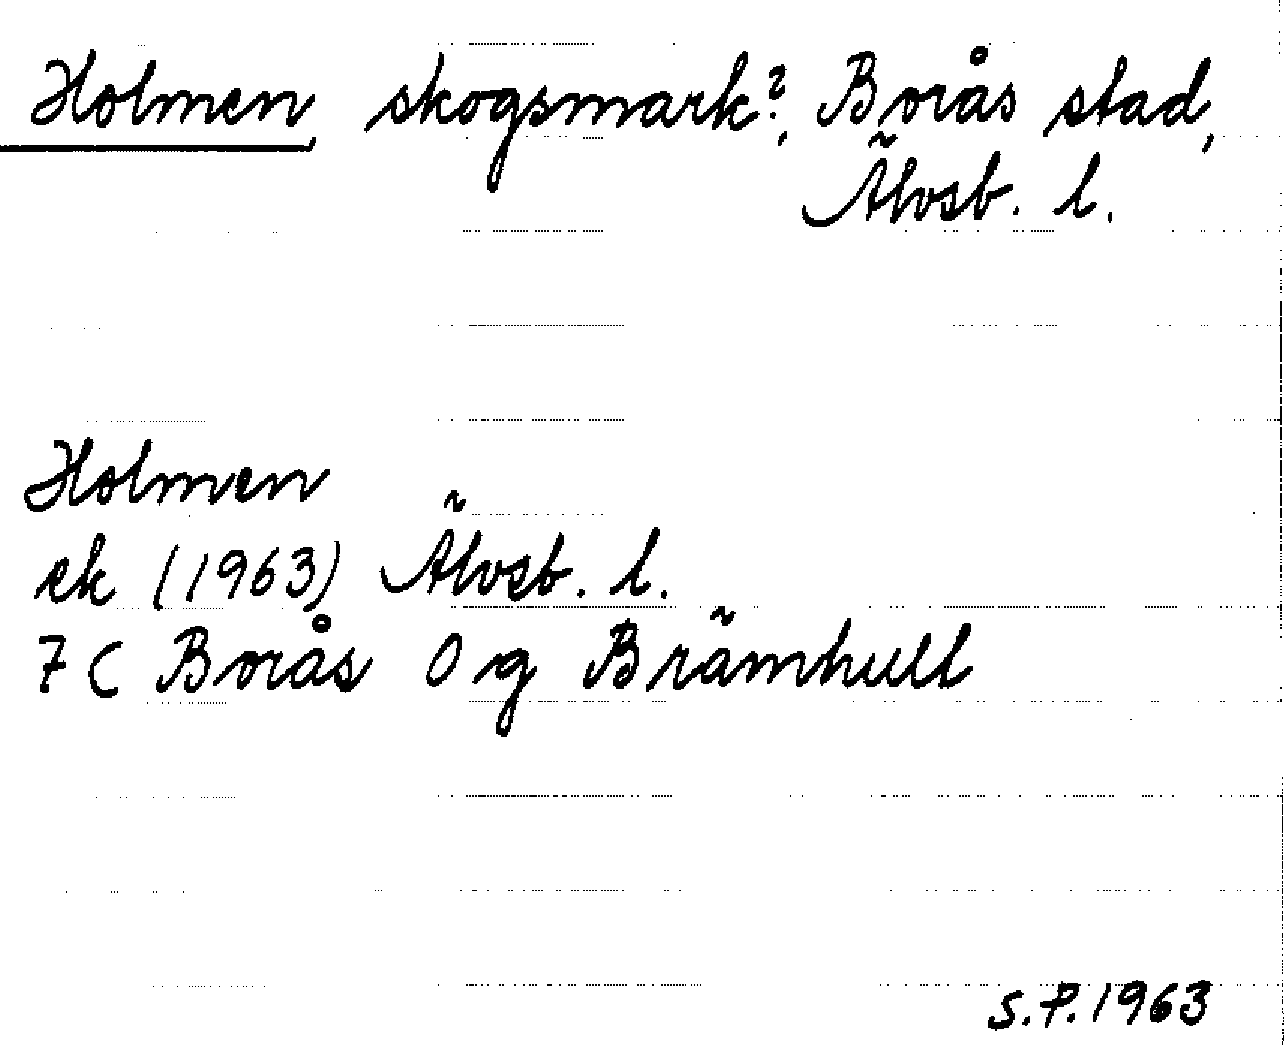 Holmen, skogsmark?, Borås stad,
Älvsb. l.
Holmen
ek (1963) Älvsb. l.
7C Borås 0g Brämhult
S.P. 1963